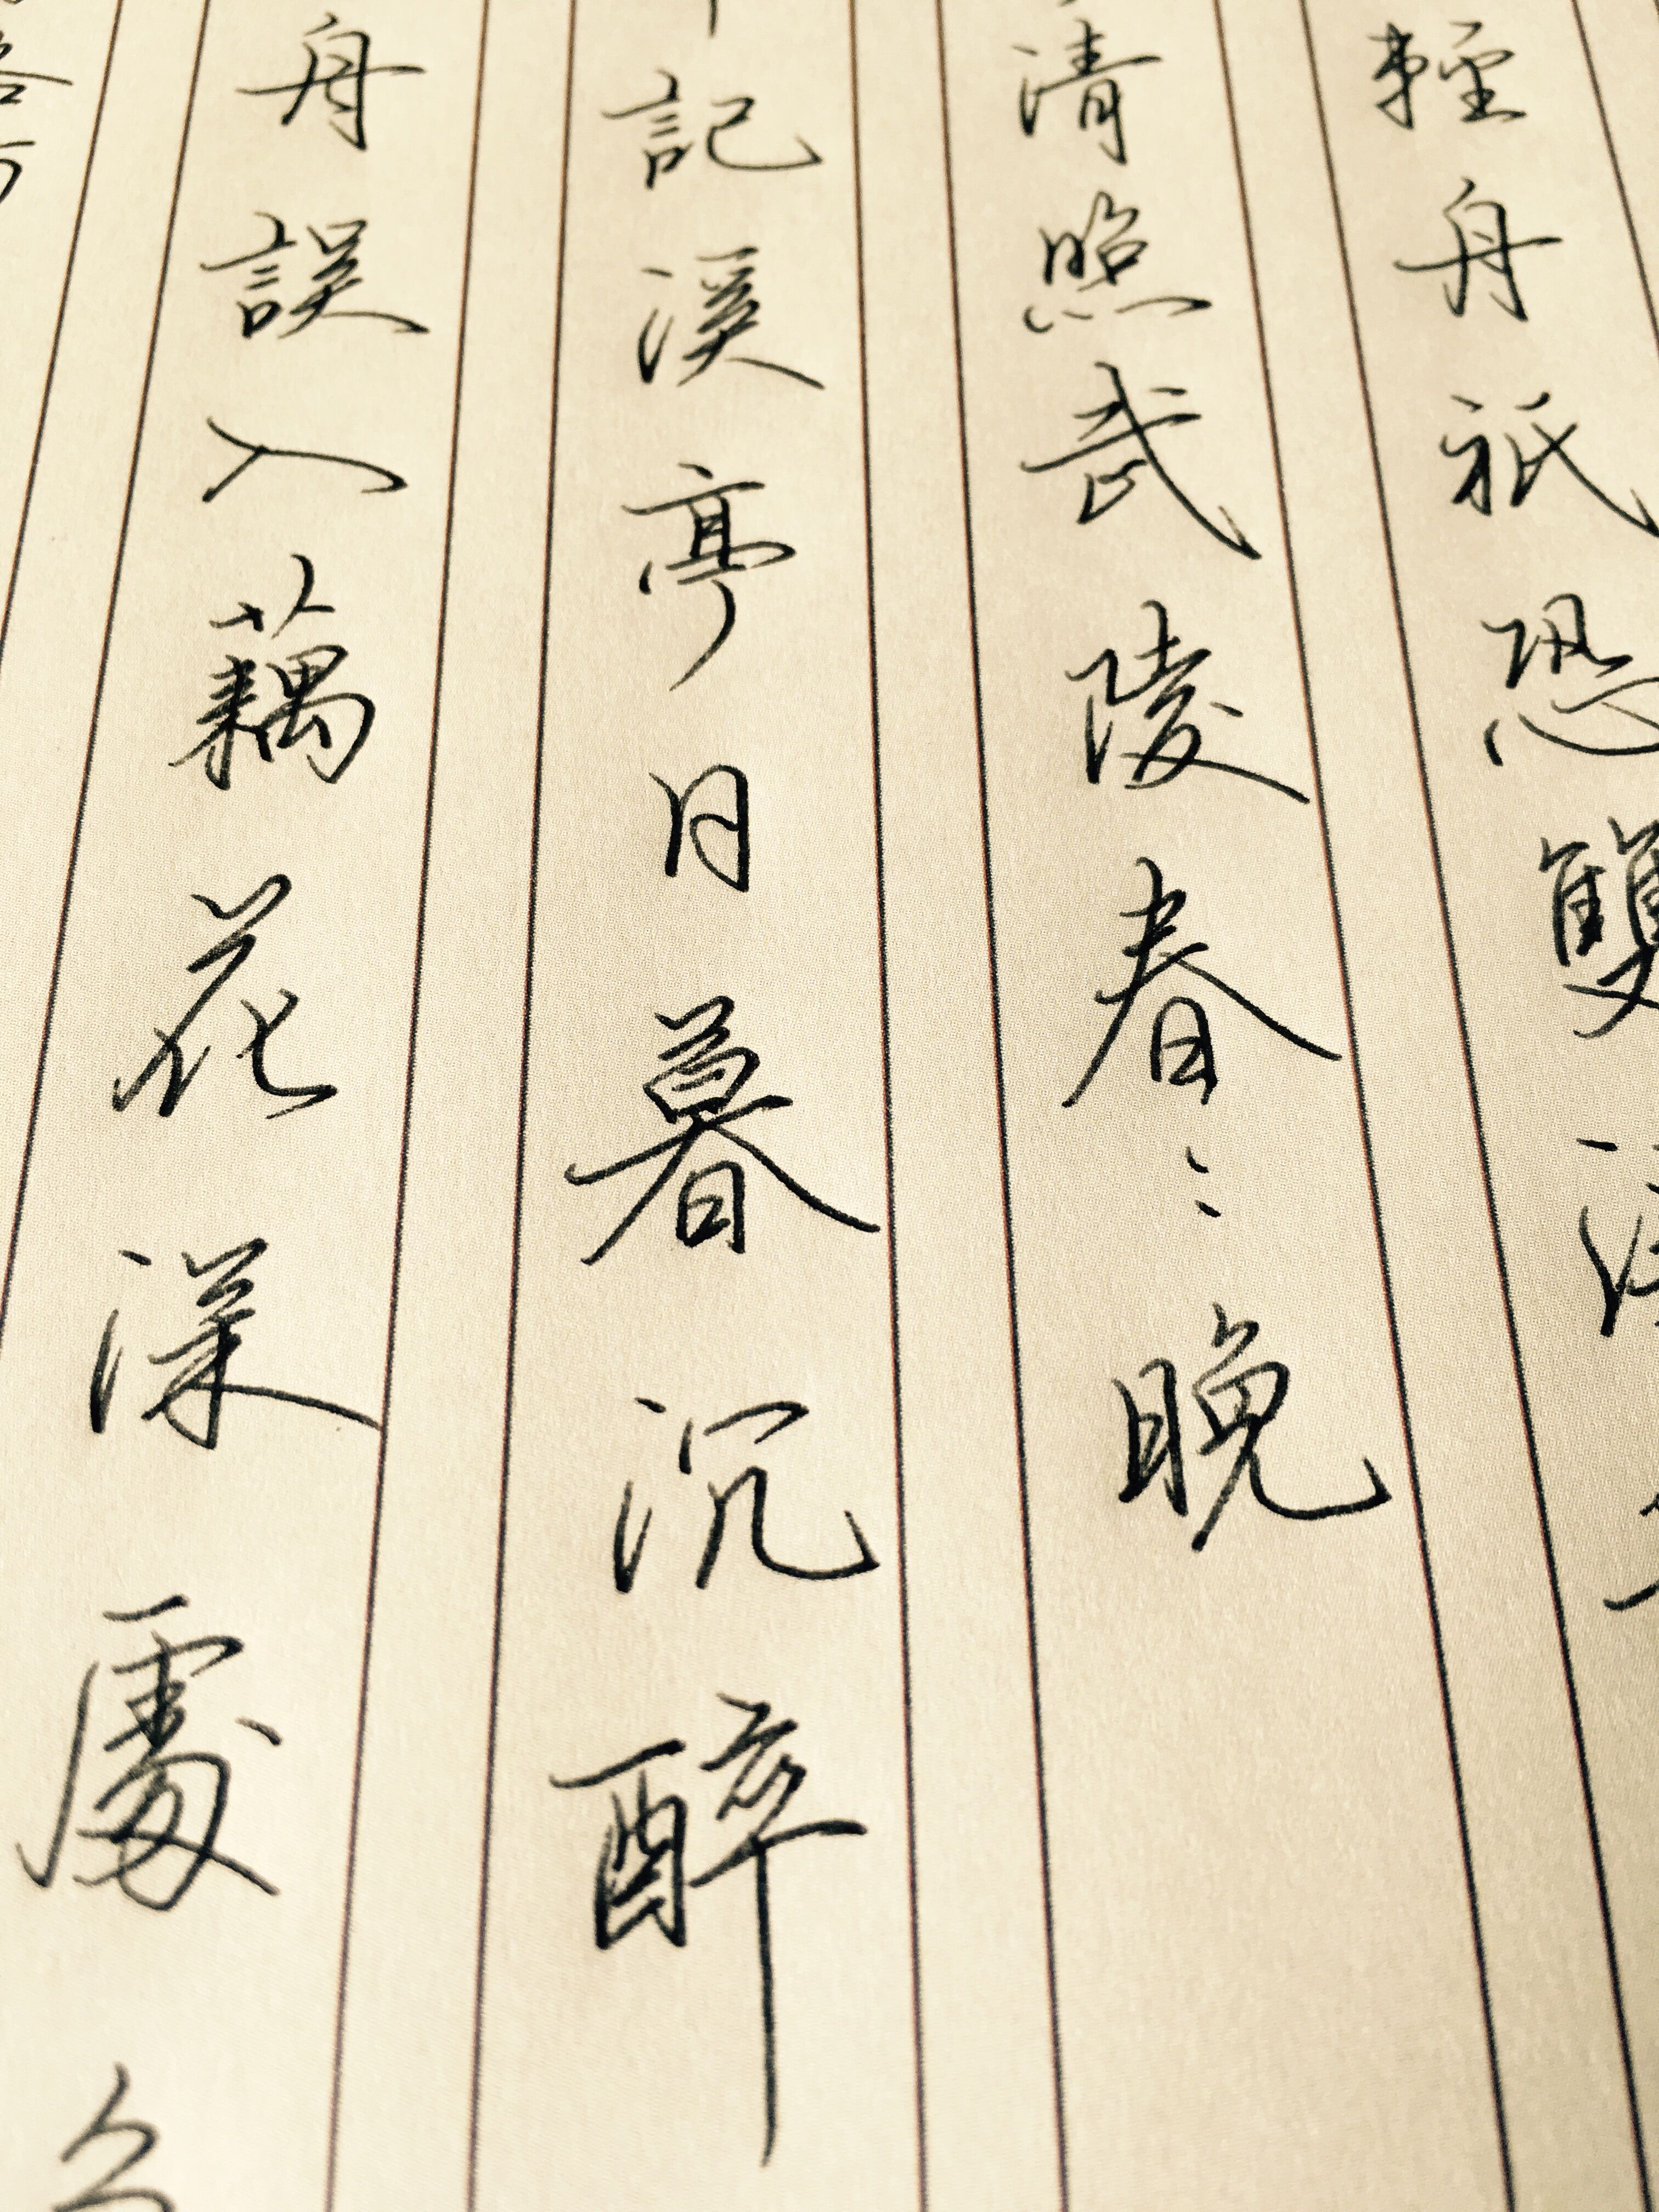 輕舟祇恐雙
清照武陵春〻晚
記溪亭日暮沉醉
舟誤入藕花深處